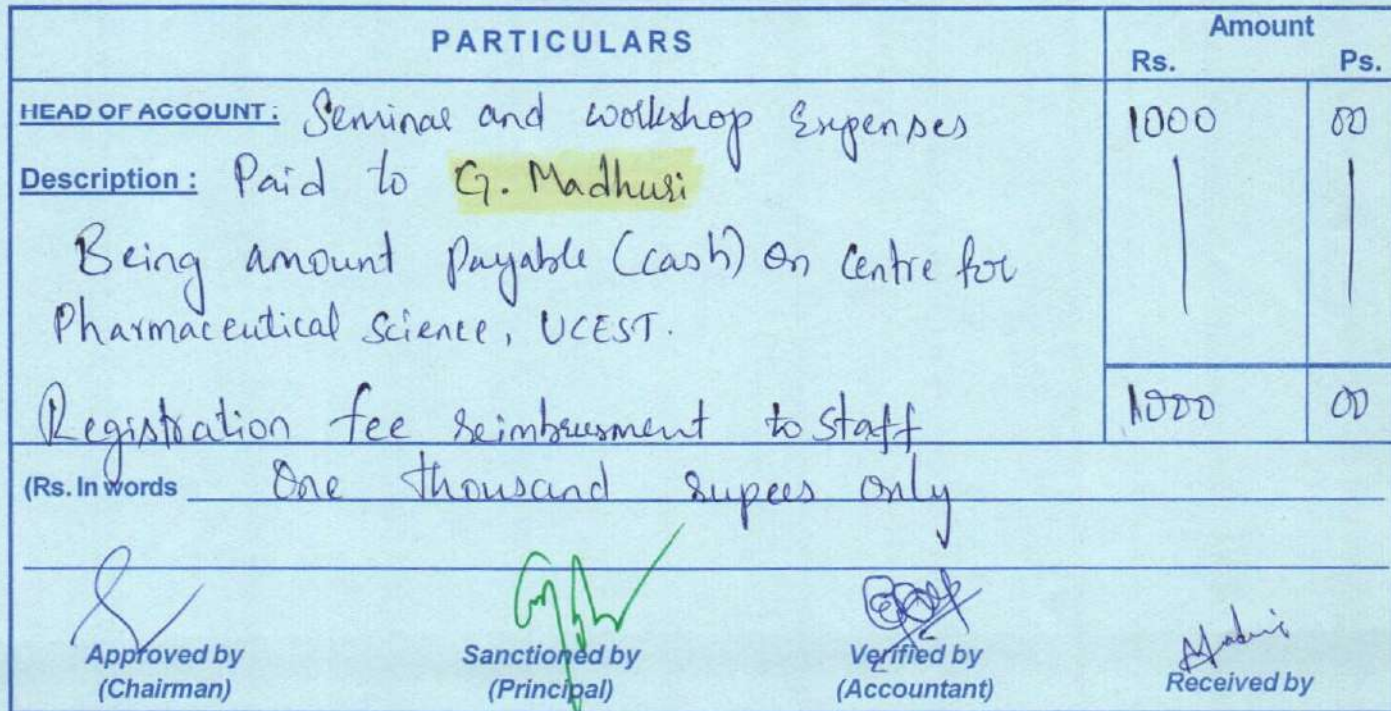 PARTICULARS
Amount
Rs. Ps.
HEAD OF ACCOUNT: Seminar and workshop Expenses 1000 00
Description: Paid to G. Madhuri
Being amount payable (cash) on Centre for
Pharmaceutical Science, UCEST.
Registration fee reimbrusment to staff 1000 00
(Rs. In words One thousand rupees only
Approved by Sanctioned by Verified by Received by
(Chairman) (Principal) (Accountant)